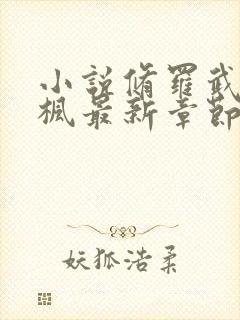 小說脩羅武
楓最新章節
妖狐浩柔